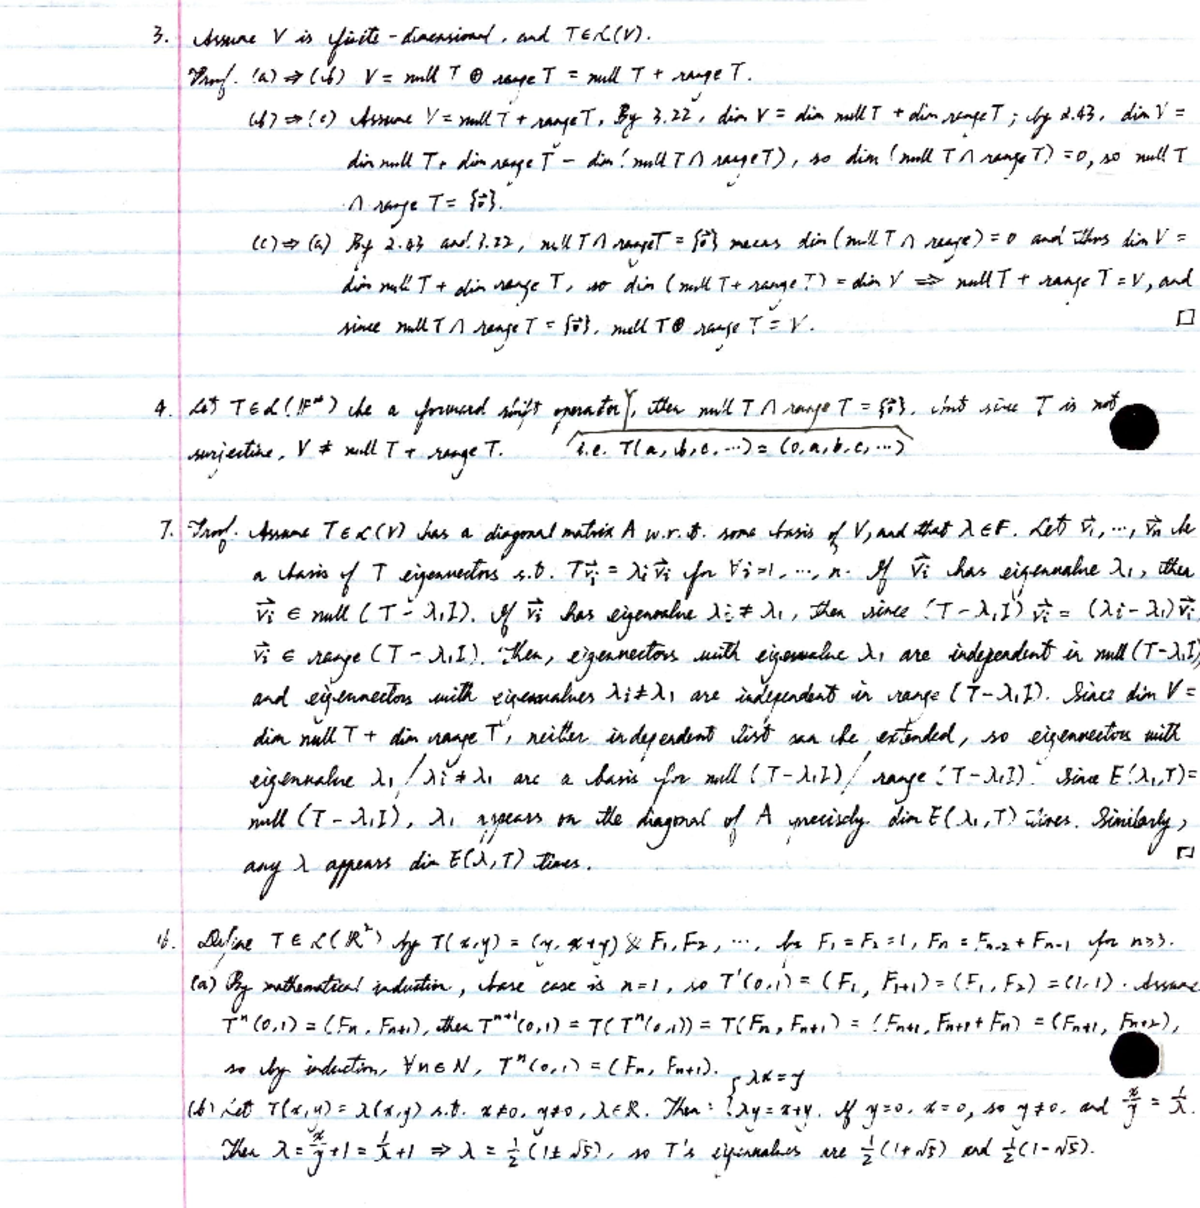 3. Assume V is finite-dimensional, and T∈L(V).
Proof. (a)⇒(b) V = null T ⊕ range T = null T + range T.
(b)⇒(c) Assume V = null T + range T, By 3.22, dim V = dim null T + dim range T; by 2.43, dim V =
dim null T + dim range T - dim(null T ∩ range T), so dim(null T ∩ range T) = 0, so null T
∩ range T = {0⃗}.
(c)⇒(a) By 2.43 and 3.22, null T ∩ range T = {0⃗} means dim(null T ∩ range) = 0 and thus dim V =
dim null T + dim range T, so dim(null T + range T) = dim V ⇒ null T + range T = V, and
since null T ∩ range T = {0⃗}, null T ⊕ range T = V. □
4. Let T∈L(F^∞) be a forward shift operator, then null T ∩ range T = {0⃗}, but since T is not
surjective, V ≠ null T + range T. i.e. T(a, b, c, ...) = (0, a, b, c, ...)
7. Proof. Assume T∈L(V) has a diagonal matrix A w.r.t. some basis of V, and that λ∈F. Let v⃗₁, ..., v⃗ₙ be
a basis of T eigenvectors s.t. Tv⃗ᵢ = λᵢv⃗ᵢ for ∀i=1, ..., n. If v⃗ᵢ has eigenvalue λ₁, then
v⃗ᵢ ∈ null (T - λ₁I). If v⃗ᵢ has eigenvalue λᵢ ≠ λ₁, then since (T - λ₁I) v⃗ᵢ = (λᵢ - λ₁)v⃗ᵢ,
v⃗ᵢ ∈ range (T - λ₁I). Then, eigenvectors with eigenvalue λ₁ are independent in null (T-λ₁I)
and eigenvectors with eigenvalues λᵢ≠λ₁ are independent in range (T - λ₁I). Since dim V =
dim null T + dim range T, neither independent list can be extended, so eigenvectors with
eigenvalue λ₁ / λᵢ ≠ λ₁ are a basis for null (T-λ₁I) / range (T-λ₁I). Since E(λ₁,T) =
null (T - λ₁I), λ₁ appears on the diagonal of A precisely dim E(λ₁, T) times. Similarly,
any λ appears dim E(λ, T) times. □
16. Define T∈L(R²) by T(x,y) = (y, x+y) & F₁, F₂, ..., by F₁ = F₂ = 1, Fₙ = Fₙ₋₂ + Fₙ₋₁ for n≥3.
(a) By mathematical induction, base case is n=1, so T¹(0,1) = (F₁, F₁₊₁) = (F₁, F₂) = (1,1). Assume
Tⁿ(0,1) = (Fₙ, Fₙ₊₁), then Tⁿ⁺¹(0,1) = T(Tⁿ(0,1)) = T(Fₙ, Fₙ₊₁) = (Fₙ₊₁, Fₙ₊₁ + Fₙ) = (Fₙ₊₁, Fₙ₊₂),
so by induction, ∀n∈N, Tⁿ(0,1) = (Fₙ, Fₙ₊₁).
(b) Let T(x,y) = λ(x,y) s.t. x≠0, y≠0, λ∈R. Then: { λx=y λy=x+y. If y=0, x=0, so y≠0, and x/y = 1/λ.
Then λ = x/y + 1 = 1/λ + 1 ⇒ λ = 1/2 (1±√5), so T's eigenvalues are 1/2 (1+√5) and 1/2 (1-√5).